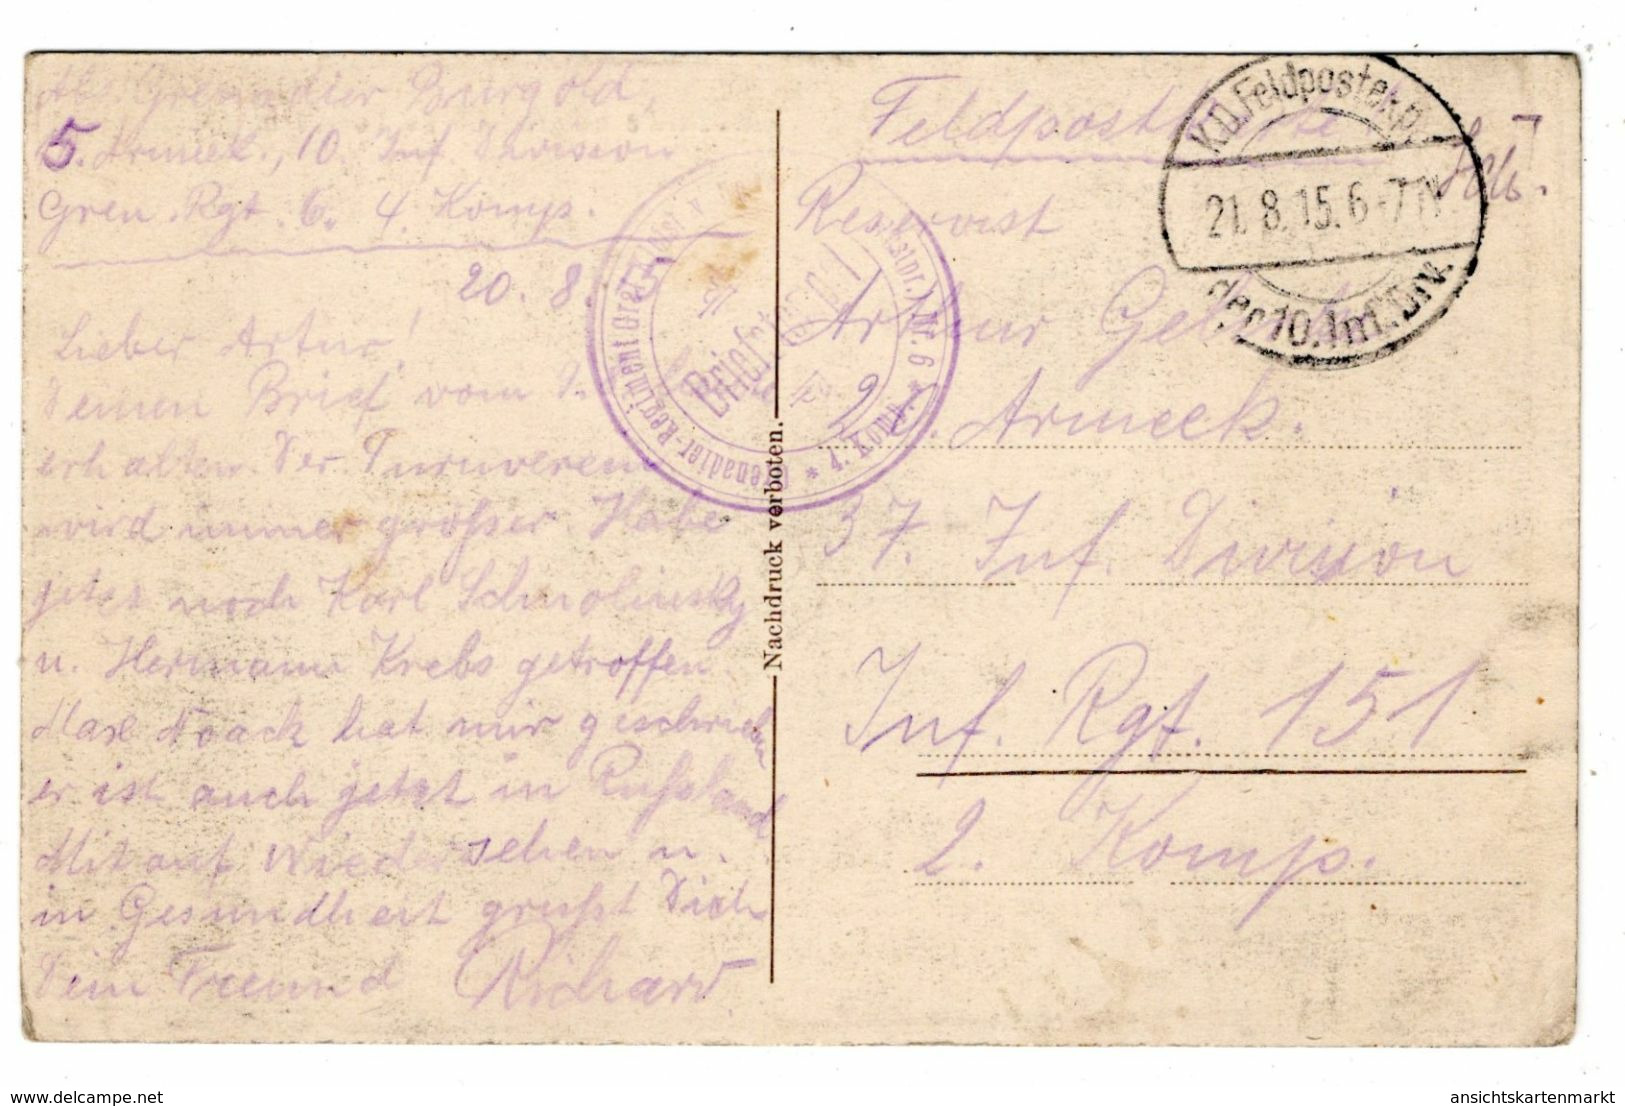 Abs. Grenadier Burgold,
5. Armeek., 10. Inf. Division
Gren. Rgt. 6. 4. Komp.
20. 8.
Lieber Artur!
Deinen Brief vom
erhalten. Der Turnverein
wird immer größer. Habe
jetzt noch Karl Schmolinsky
u. Hermann Krebs getroffen.
Noack hat mir geschrieben
er ist auch jetzt in Rußland
Mit auf Wiedersehen u.
in Gesundheit grüßt Dich
Dein Freund Richard.
Feldpostkarte
Reservist
Arthur
2. Armeek.
37. Inf. Division
Inf. Rgt. 151
2. Komp.
K.D. Feldpostexp.
21.8.15. 6-7 N
der 10. Inf. Div.
Grenadier-Regiment Graf Kleist
Nr. 6 * 4. Komp. *
Nachdruck verboten.
www.delcampe.net
ansichtskartenmarkt